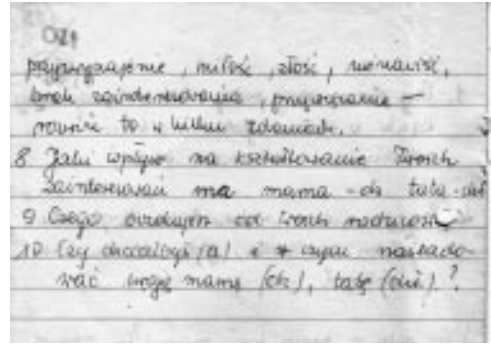 przyzwyczajenie, miłość, złość, nienawiść,
brak zainteresowania, przywiązanie –
rozwiń to w kilku zdaniach.
8 Jaki wpływ na kształtowanie Twoich
zainteresowań ma mama - dz tata - chł
9 Czego oczekujesz od twoich rodziców
10 Czy chciałbyś (a) i w czym naślado-
wać swoją mamę (dz), tatę (chł)?